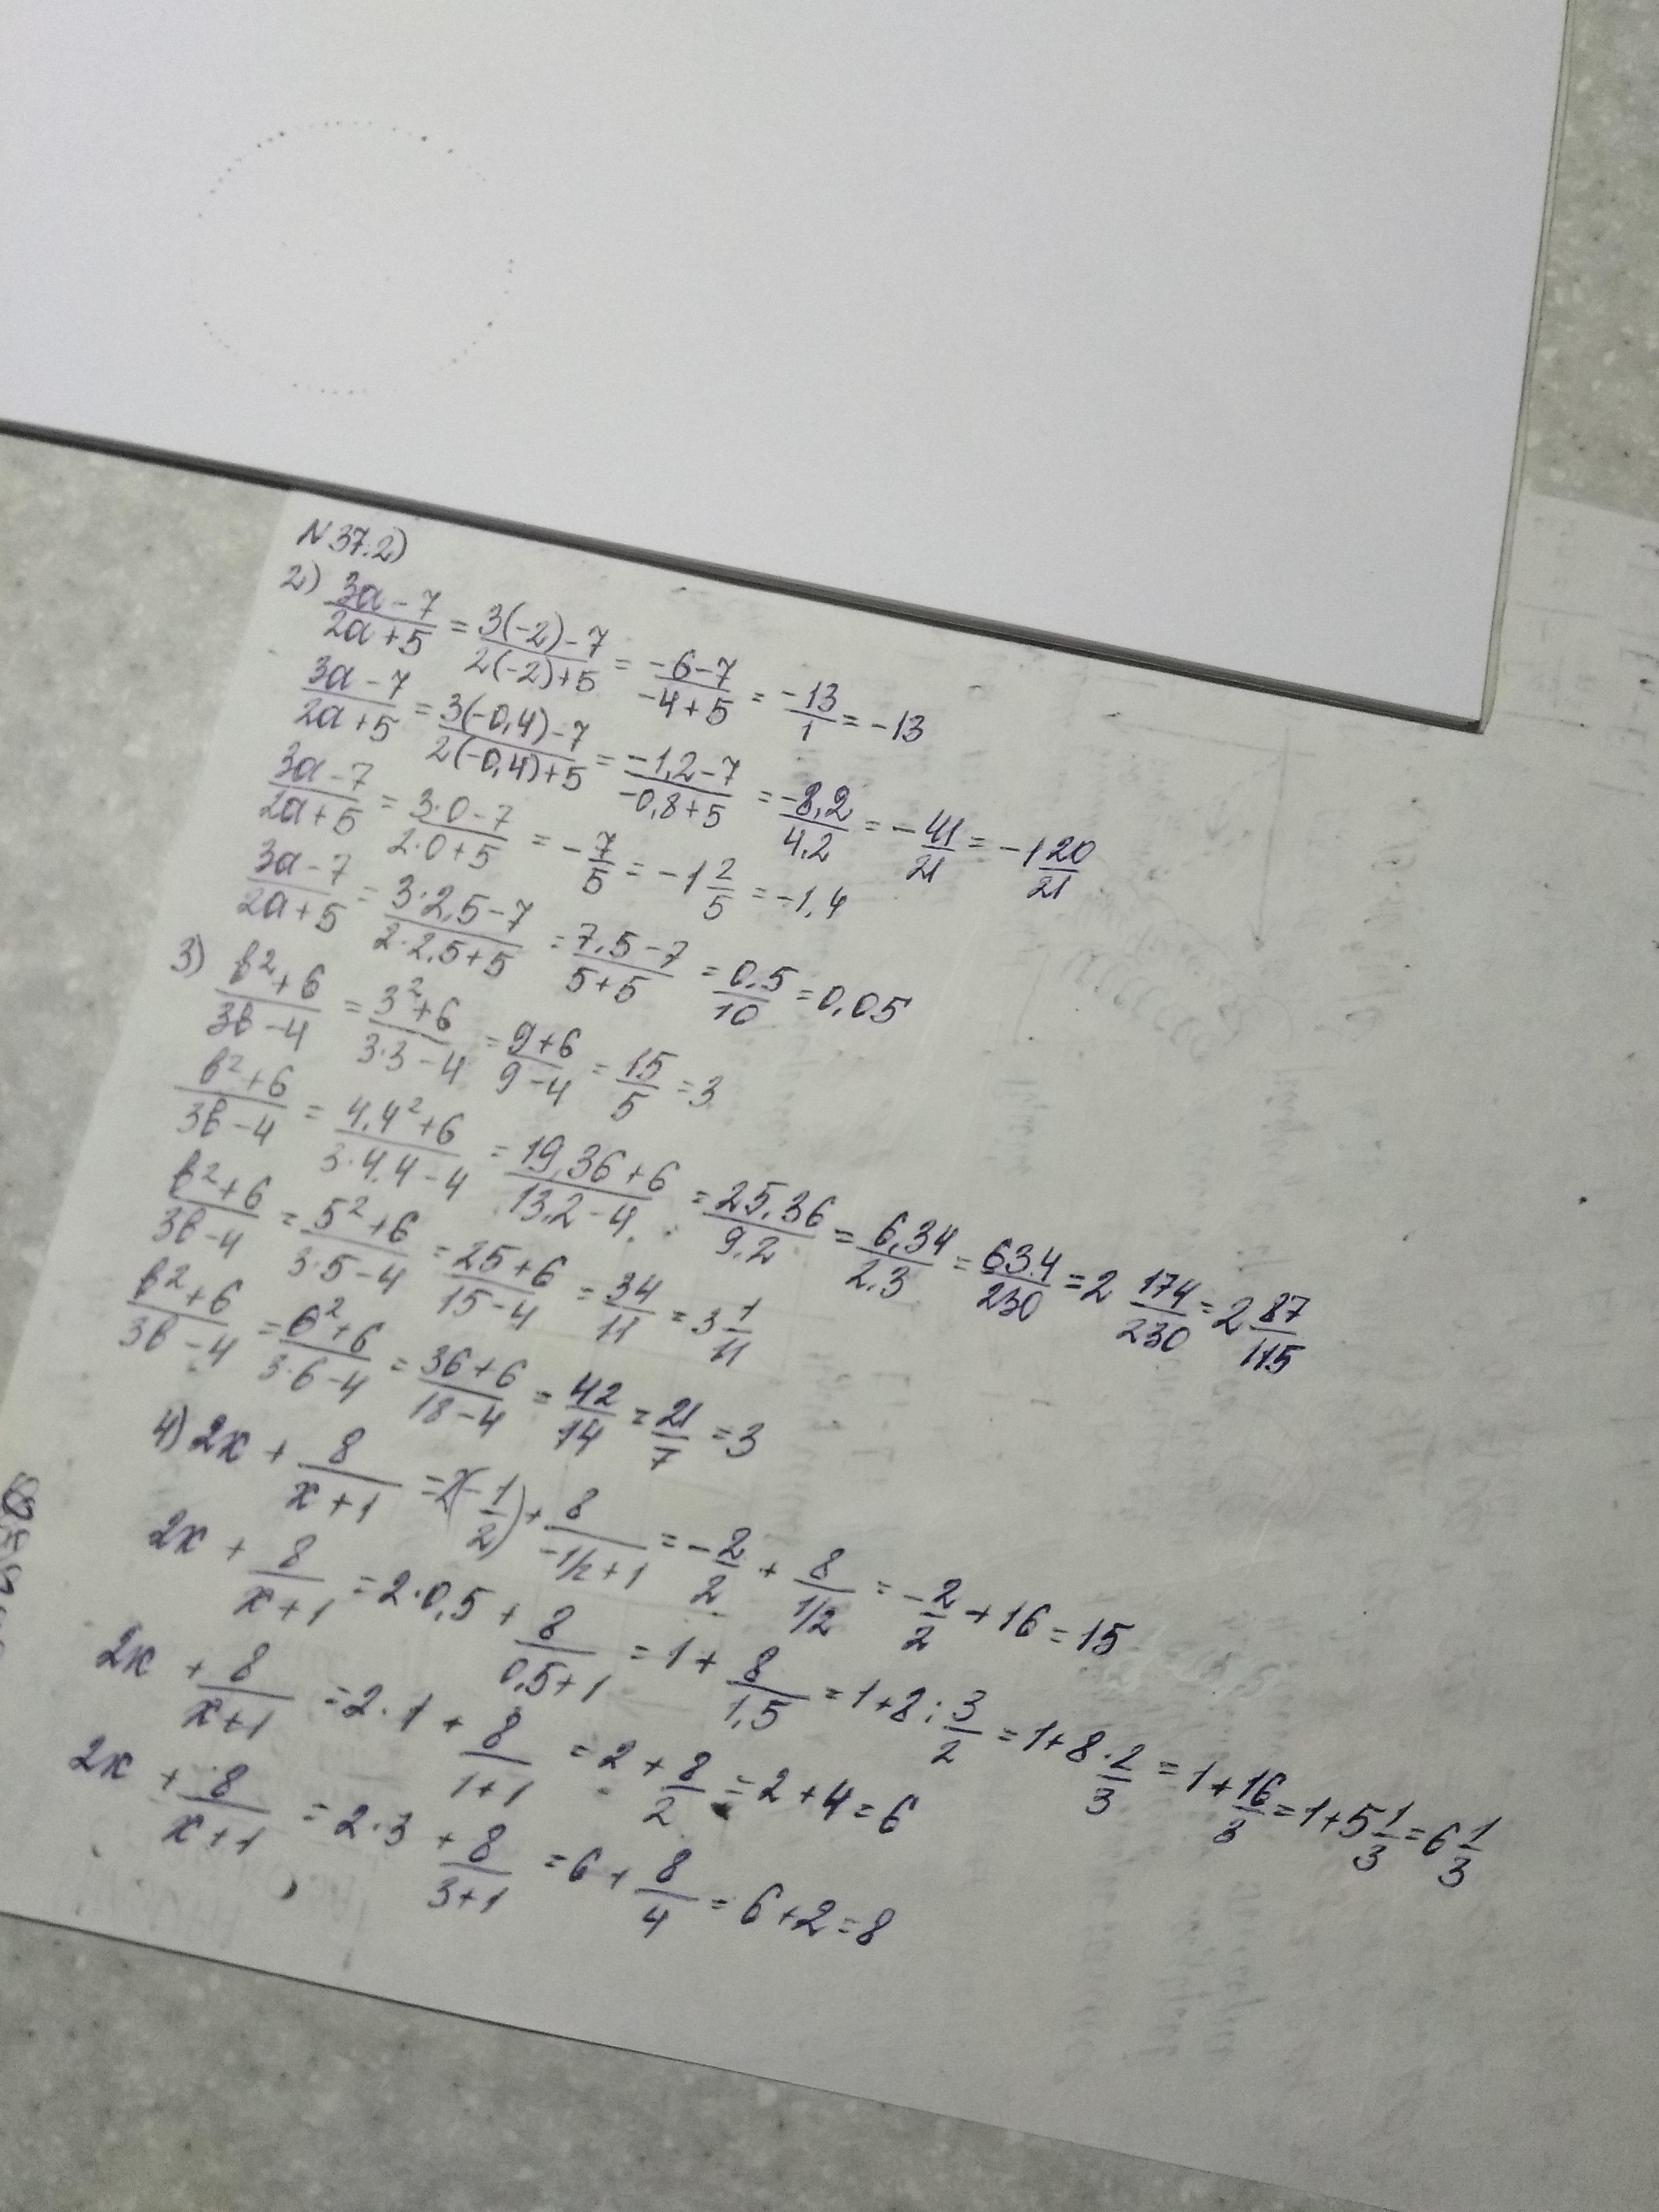 N 37.2)
2) (3a-7)/(2a+5) = (3(-2)-7)/(2(-2)+5) = (-6-7)/(-4+5) = -13/1 = -13
(3a-7)/(2a+5) = (3(-0,4)-7)/(2(-0,4)+5) = (-1,2-7)/(-0,8+5) = -8,2/4,2 = -41/21 = -1 20/21
(3a-7)/(2a+5) = (3·0-7)/(2·0+5) = -7/5 = -1 2/5 = -1,4
(3a-7)/(2a+5) = (3·2,5-7)/(2·2,5+5) = (7,5-7)/(5+5) = 0,5/10 = 0,05
3) (b²+6)/(3b-4) = (3²+6)/(3·3-4) = (9+6)/(9-4) = 15/5 = 3
(b²+6)/(3b-4) = (4,4²+6)/(3·4,4-4) = (19,36+6)/(13,2-4) = 25,36/9,2 = 6,34/2,3 = 634/230 = 2 174/230 = 2 87/115
(b²+6)/(3b-4) = (5²+6)/(3·5-4) = (25+6)/(15-4) = 34/11 = 3 1/11
(b²+6)/(3b-4) = (6²+6)/(3·6-4) = (36+6)/(18-4) = 42/14 = 21/7 = 3
4) 2x + 8/(x+1) = 2(-1/2) + 8/(-1/2+1) = -2/2 + 8/(1/2) = -2/2 + 16 = 15
2x + 8/(x+1) = 2·0,5 + 8/(0,5+1) = 1 + 8/1,5 = 1+8:3/2 = 1+8·2/3 = 1+16/3 = 1+5 1/3 = 6 1/3
2x + 8/(x+1) = 2·1 + 8/(1+1) = 2 + 8/2 = 2+4 = 6
2x + 8/(x+1) = 2·3 + 8/(3+1) = 6 + 8/4 = 6+2 = 8